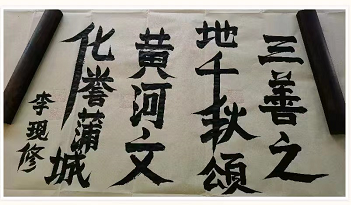 三善之
地千秋颂
黄河文
化誉蒲城
李现修